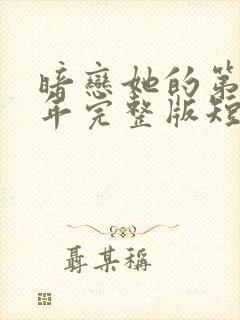 暗戀她的第
年完整版短
聶某稱